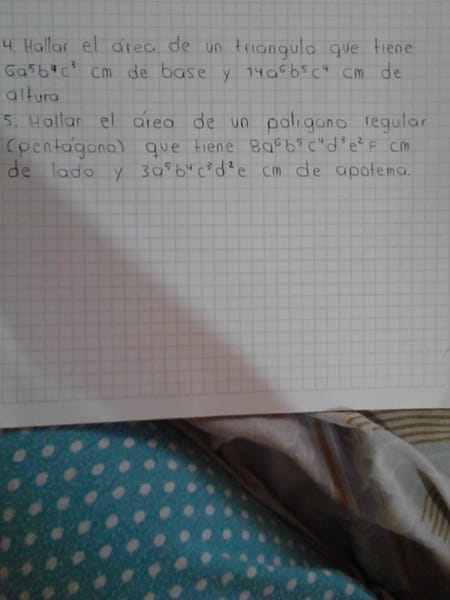 4. Hallar el área de un triangulo que tiene
6a⁵b⁴c³ cm de base y 14a⁶b⁵c⁴ cm de
altura
5. Hallar el área de un poligono regular
(pentágono) que tiene 8a⁶b⁵c⁴d³e²F cm
de lado y 3a⁵b⁴c³d²e cm de apotema.